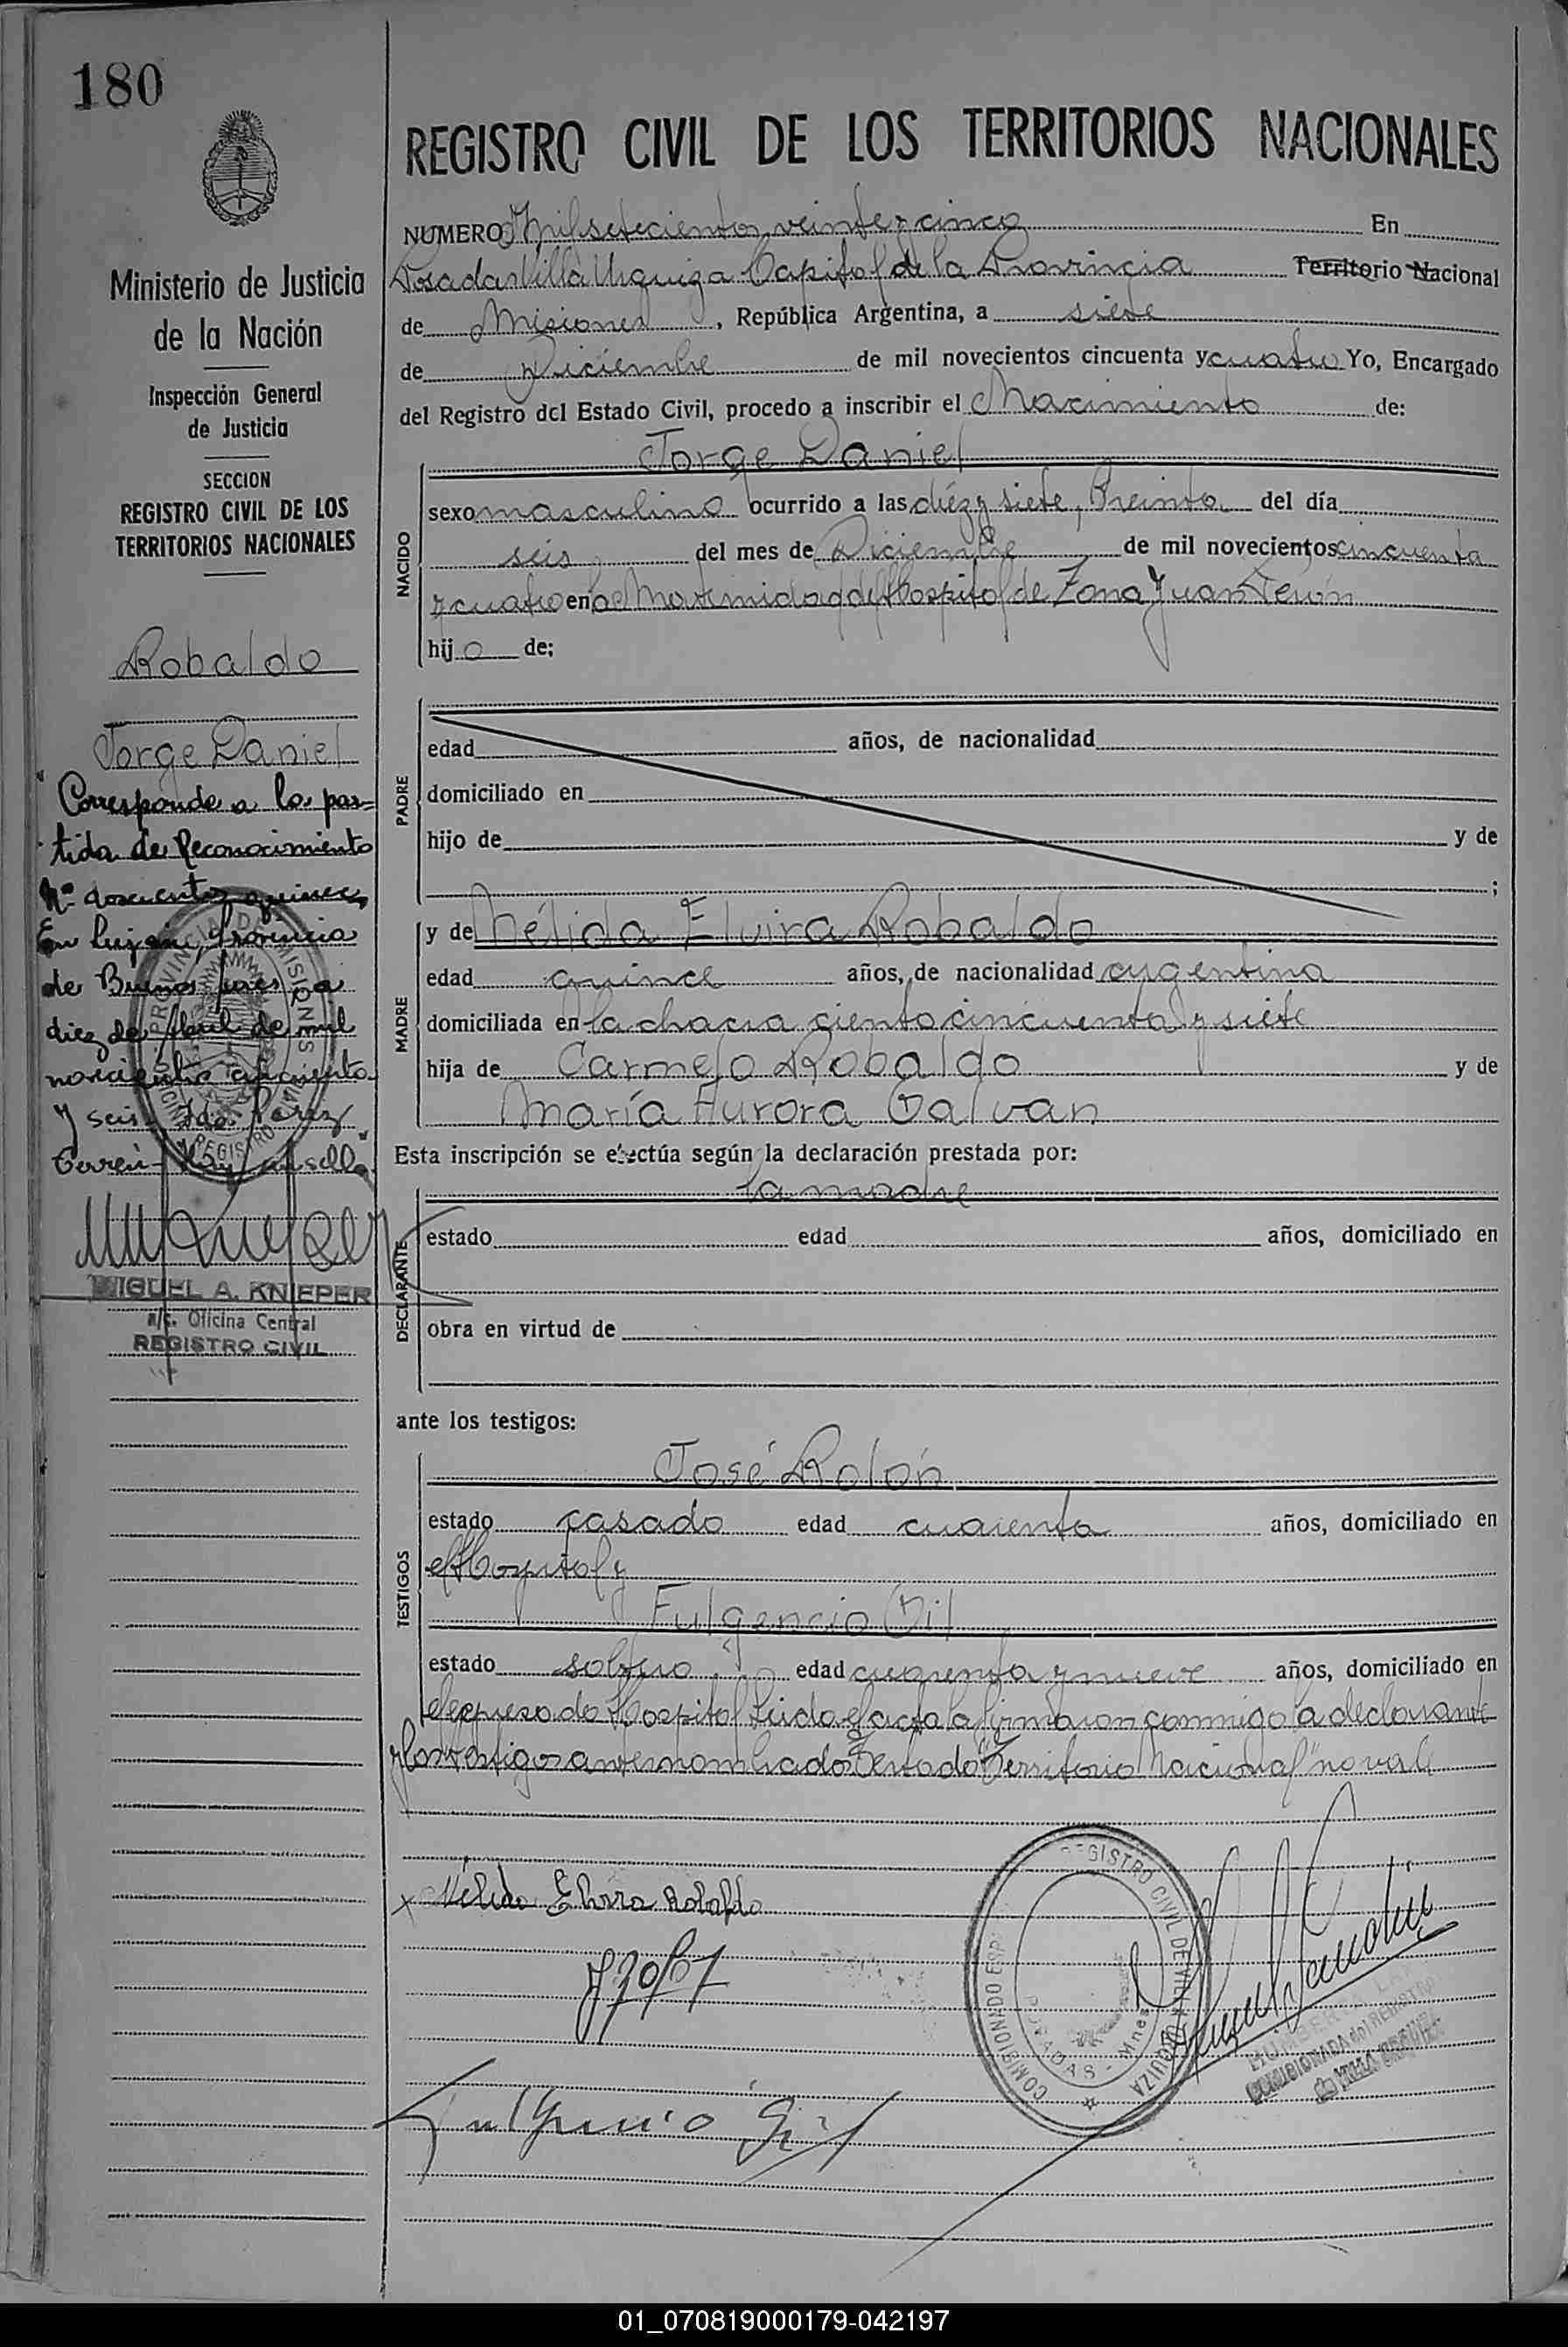 180
Ministerio de Justicia
de la Nación
Inspección General
de Justicia
SECCION
REGISTRO CIVIL DE LOS
TERRITORIOS NACIONALES
Robaldo
Jorge Daniel
"Corresponde a la par=
tida de Reconocimiento
Nº doscientos quince,
En Luján, Provincia
de Buenos Aires, a
diez de Abril de mil
novecientos cincuenta
y seis. Fdo. Perez
Hay un sello"
MIGUEL A. KNIEPER
a/c. Oficina Central
REGISTRO CIVIL
REGISTRO CIVIL DE LOS TERRITORIOS NACIONALES
NUMERO Mil setecientos veinte y cinco En
Posadas Villa Urquiza Capital de la Provincia Territorio Nacional
de Misiones, República Argentina, a siete
de Diciembre de mil novecientos cincuenta y cuatro Yo, Encargado
del Registro del Estado Civil, procedo a inscribir el Nacimiento de:
Jorge Daniel
NACIDO
sexo masculino ocurrido a las diéz y siete, treinta del día
seis del mes de Diciembre de mil novecientos cincuenta
y cuatro en la Maternidad del Hospital de Zona Juan Perón
hijo de;
PADRE
edad años, de nacionalidad
domiciliado en
hijo de y de
;
MADRE
y de Nélida Elvira Robaldo
edad quince años, de nacionalidad argentina
domiciliada en la chacra ciento cincuenta y siete
hija de Carmelo Robaldo y de
María Aurora Galvan
Esta inscripción se efectúa según la declaración prestada por:
la madre
DECLARANTE
estado edad años, domiciliado en
obra en virtud de
ante los testigos:
José Rolón
TESTIGOS
estado casado edad cuarenta años, domiciliado en
el Hospital y
Fulgencio Gil
estado soltero edad cuarenta y nueve años, domiciliado en
el expresado Hospital Leida el acta la firmaron conmigo la declarante
y los testigos antes nombrados Testado "Territorio Nacional" no vale
x Nélida Elvira Robaldo
Fulgencio Gil
COMISIONADO REGISTRO CIVIL DE VILLA URQUIZA
POSADAS - Mnes
COMISIONADA del REGISTRO
de VILLA URQUIZA
01_070819000179-042197